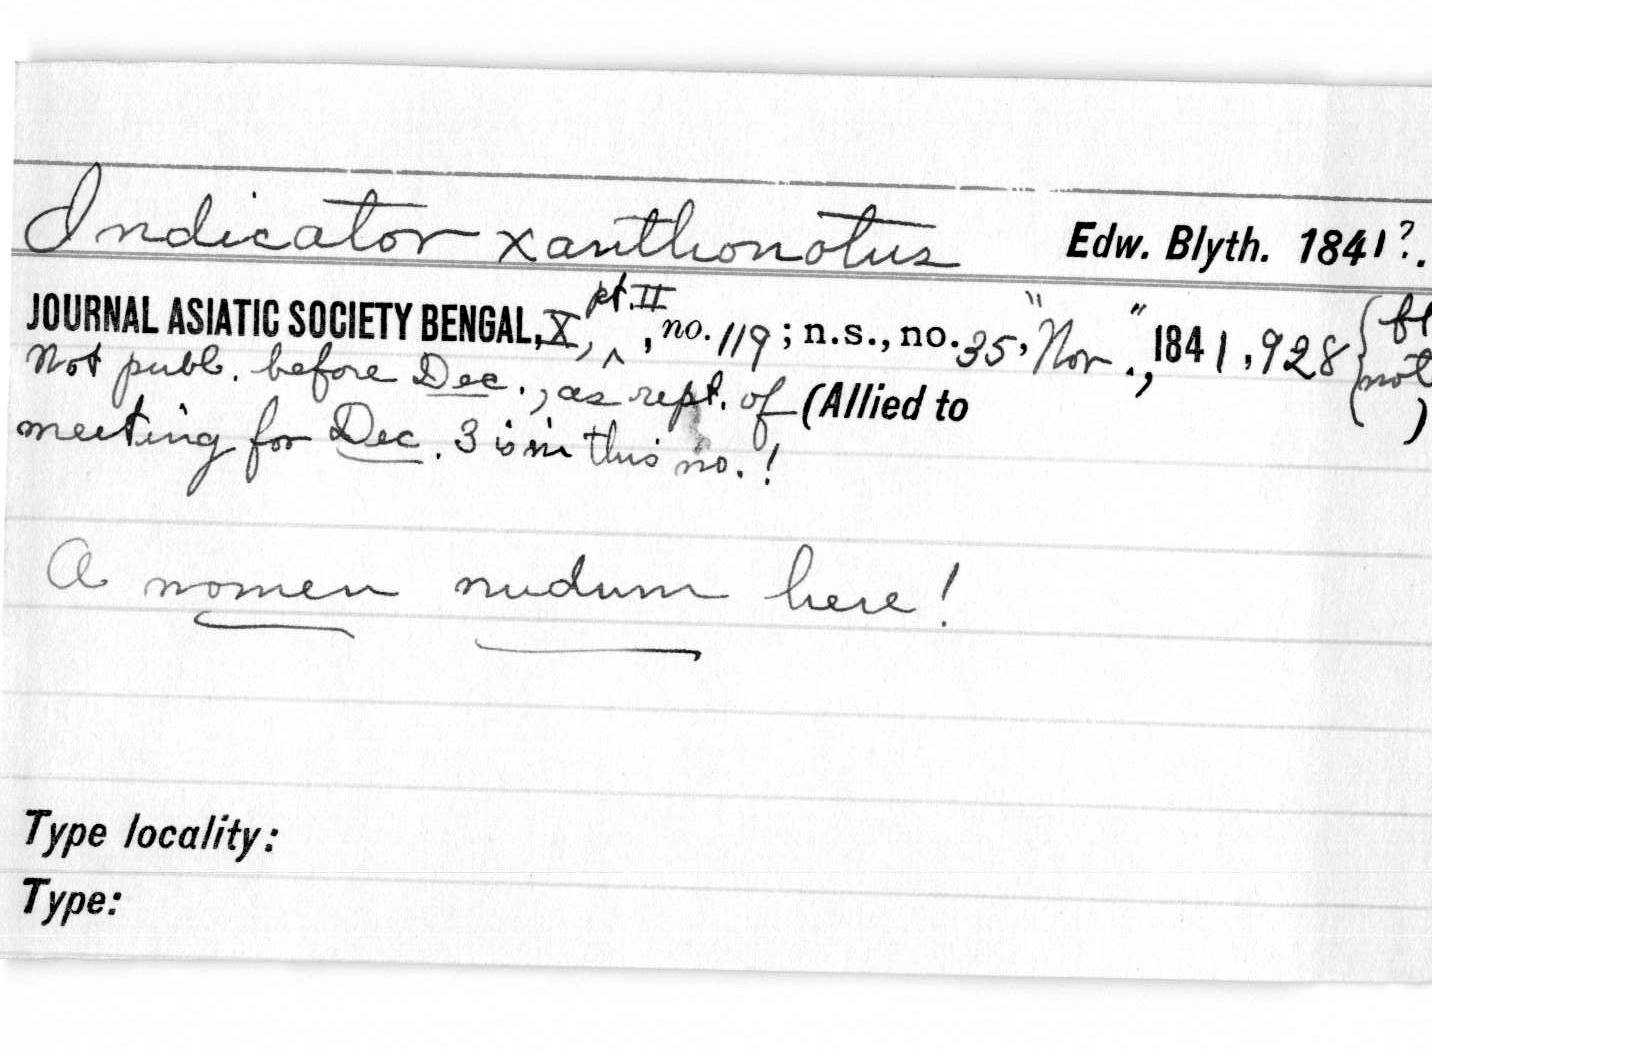 Indicator xanthonotus Edw. Blyth. 1841?.
JOURNAL ASIATIC SOCIETY BENGAL, X, pt. II, no. 119; n.s., no. 35, "Nov.", 1841, 928 {
not
Not publ. before Dec., as rept. of (Allied to )
meeting for Dec. 3 is in this no.!
A nomen nudum here!
Type locality:
Type: